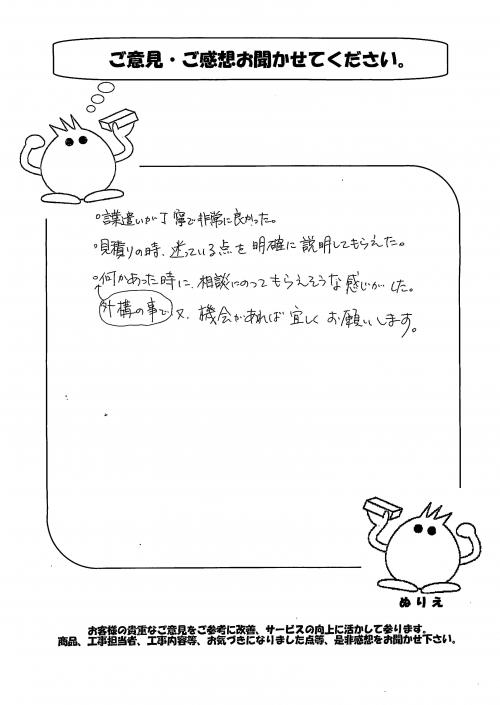 ご意見・ご感想お聞かせてください。
○言葉遣いが丁寧で非常に良かった。
○見積りの時、迷っている点を明確に説明してもらえた。
○何かあった時に、相談にのってもらえそうな感じがした。
外構の事で又、機会があれば宜しくお願いします。
ぬりえ
お客様の貴重なご意見をご参考に改善、サービスの向上に活かして参ります。
商品、工事担当者、工事内容等、お気づきになりました点等、是非感想をお聞かせ下さい。